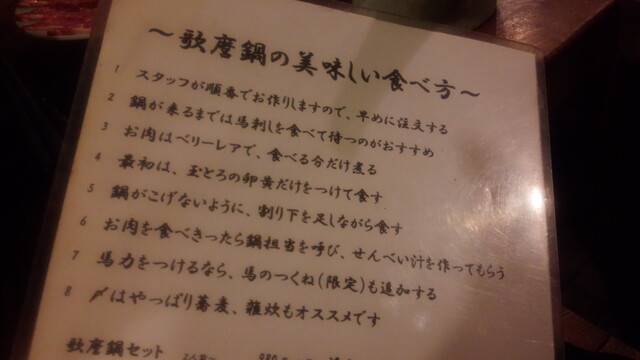 ～歌麿鍋の美味しい食べ方～
1 スタッフが順番でお作りしますので、早めに注文する
2 鍋が来るまでは馬刺しを食べて待つのがおすすめ
3 お肉はベリーレアで、食べる分だけ煮る
4 最初は、玉とろの卵黄だけをつけて食す
5 鍋がこげないように、割り下を足しながら食す
6 お肉を食べきったら鍋担当を呼び、せんべい汁を作ってもらう
7 馬力をつけるなら、馬のつくね(限定)も追加する
8 〆はやっぱり蕎麦、雑炊もオススメです
歌麿鍋セット